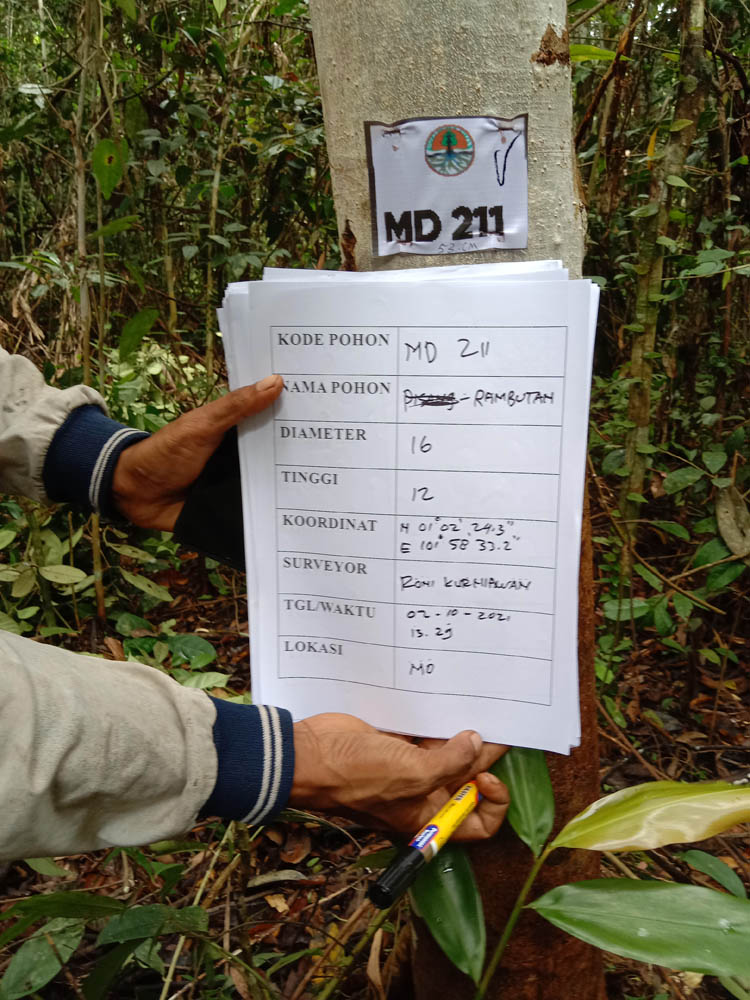 MD 211
52 CM
KODE POHON MD 211
NAMA POHON - RAMBUTAN
DIAMETER 16
TINGGI 12
KOORDINAT N 01° 02' 24.3"
E 101° 58' 33.2"
SURVEYOR RONI KURNIAWAN
TGL/WAKTU 02-10-2021
13.29
LOKASI MD